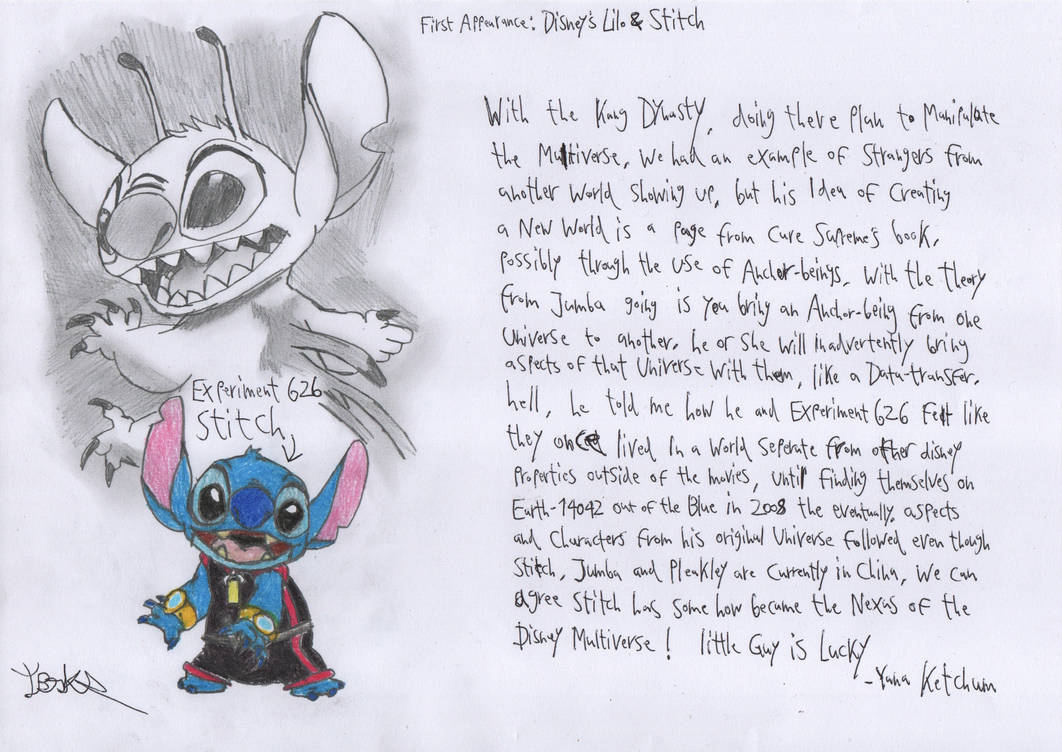 First Appearance: Disney's Lilo & Stitch
With the Kang DYnasty, doing there plan to Manipulate
the Multiverse, we had an example of Strangers from
another World Showing up, but his Idea of Creating
a New World is a page from Cure Supreme's book,
possibly through the use of Anchor-beings, with the theory
from Jumba going is you bring an Anchor-being from one
Universe to another, he or She will inadvertently bring
aspects of that Universe with them, like a Data-transfer.
hell, he told me how he and Experiment 626 Felt like
they once lived in a world Seperate from other disney
Properties outside of the movies, until finding themselves on
Earth-14042 out of the Blue in 2008 the eventually aspects
and Characters from his original Universe followed even though
Stitch, Jumba and Pleakley are currently in China, we can
agree Stitch has some how became the Nexus of the
Disney Multiverse! little Guy is Lucky
-Yana Ketchum
Experiment 626
Stitch